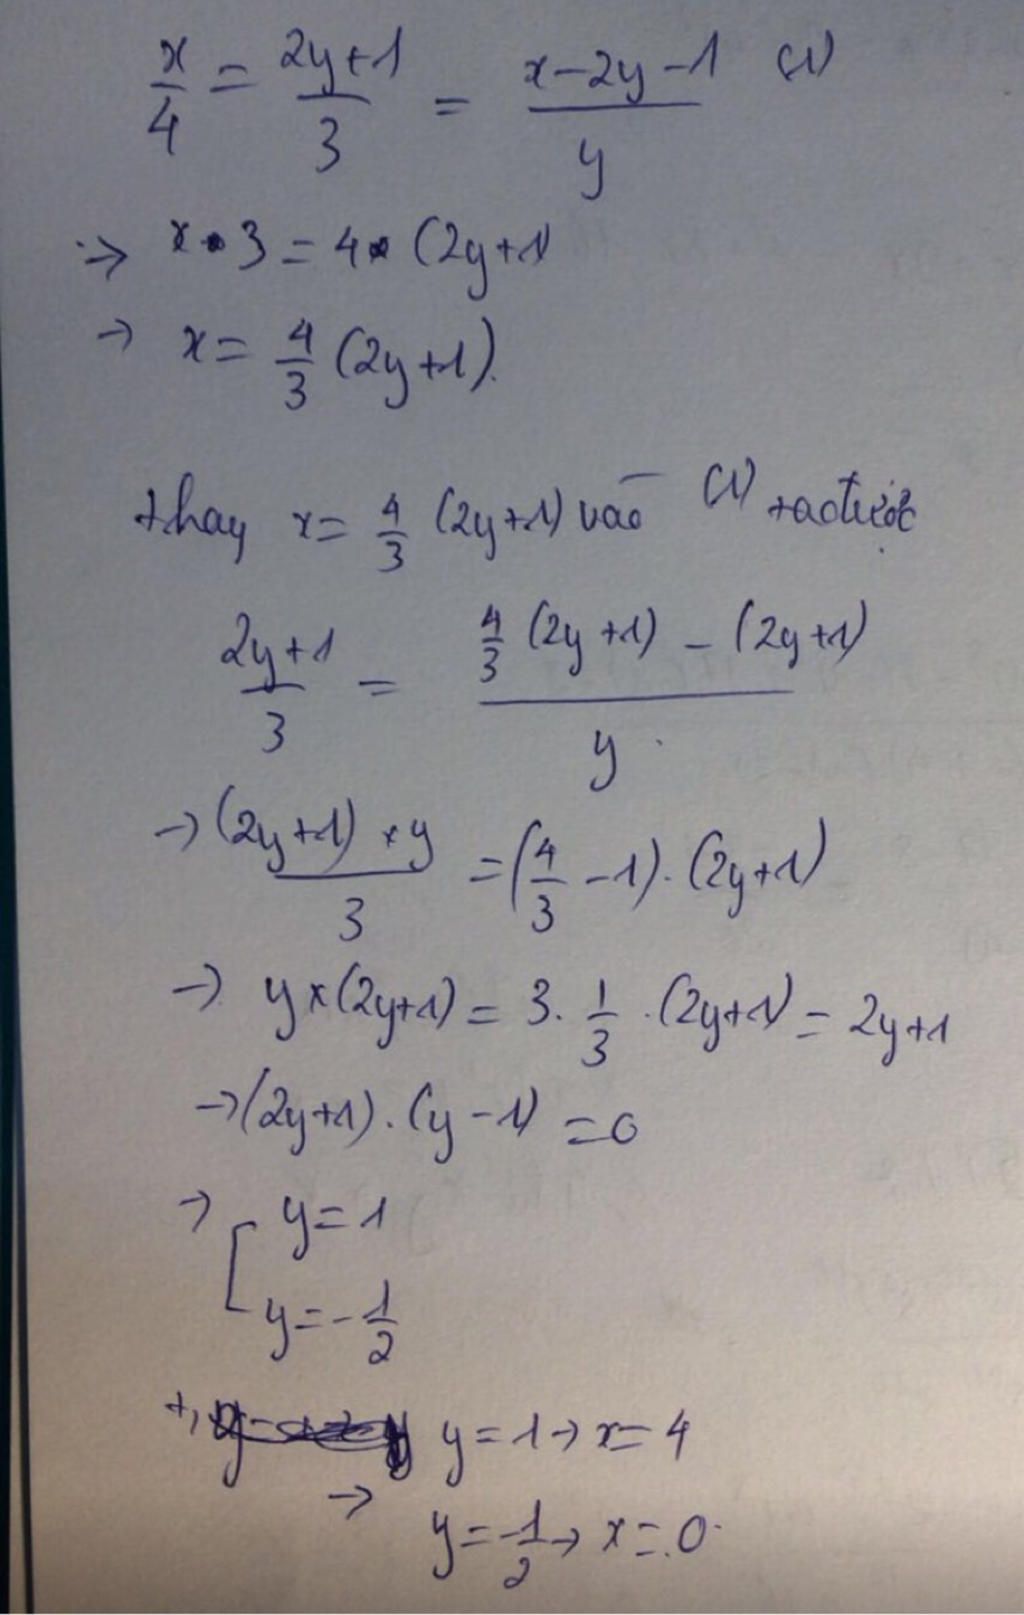 x/4 = (2y+1)/3 = (x-2y-1)/y (1)
→ x·3 = 4·(2y+1)
→ x = 4/3 (2y+1).
thay x = 4/3 (2y+1) vào (1) ta được
(2y+1)/3 = (4/3 (2y+1) - (2y+1))/y
→ ((2y+1) × y)/3 = (4/3 - 1)·(2y+1)
→ y×(2y+1) = 3·1/3·(2y+1) = 2y+1
→ (2y+1)·(y-1) = 0
→ [ y = 1
y = -1/2
+, y = 1 → x = 4
→ y = -1/2 → x = 0